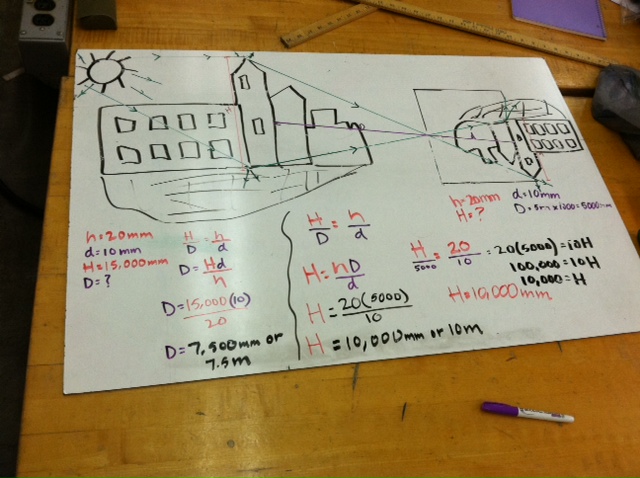 h=20mm
d=10mm
H=15,000mm
D=?
H/D = h/d
D=Hd/h
D=15,000(10)/20
D=7,500mm or
7.5m
H/D = h/d
H=hD/d
H=20(5000)/10
H=10,000mm or 10m
h=20mm
H=?
d=10mm
H/5000 = 20/10 = 20(5000)=10H
100,000=10H
10,000=H
H=10,000mm